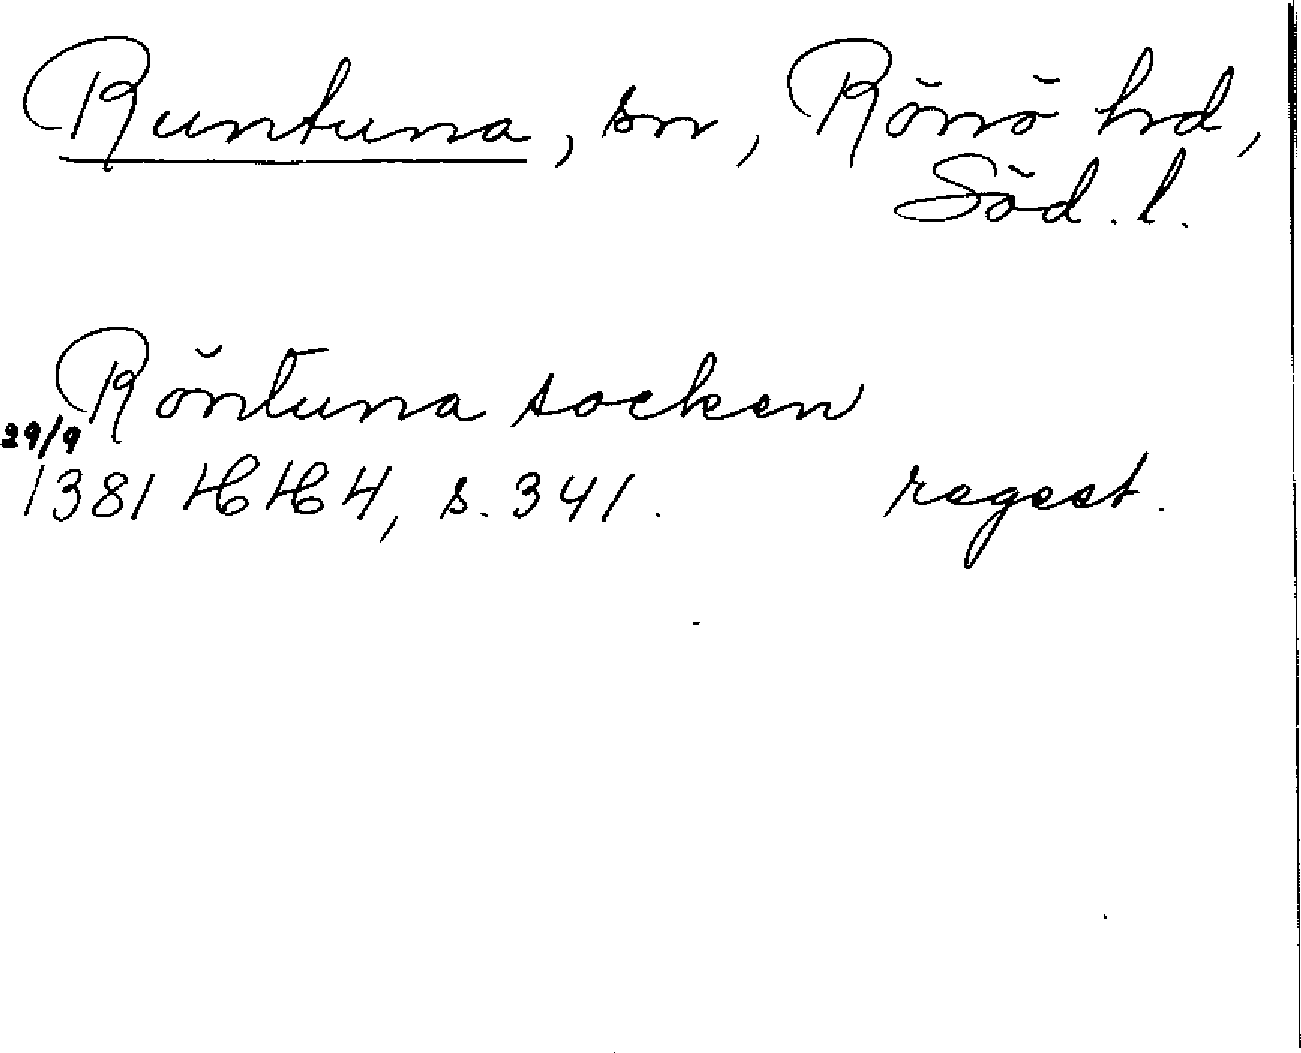 Runtuna, sn, Rönö hd,
Söd. l.
Röntuna socken
29/9
1381 HH 4, s. 341. regest.